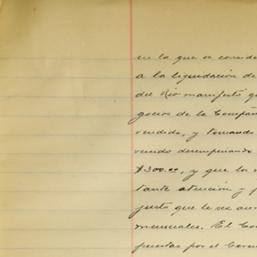 en la que se conside
a la liquidación de
del Rio manifestó qu
gocios de la Compañ
vendido, y tomando
venido desempeñando
$300.00, y que la
tante atención y
justo que le sea aum
mensuales. El Con
puestas por el Geren